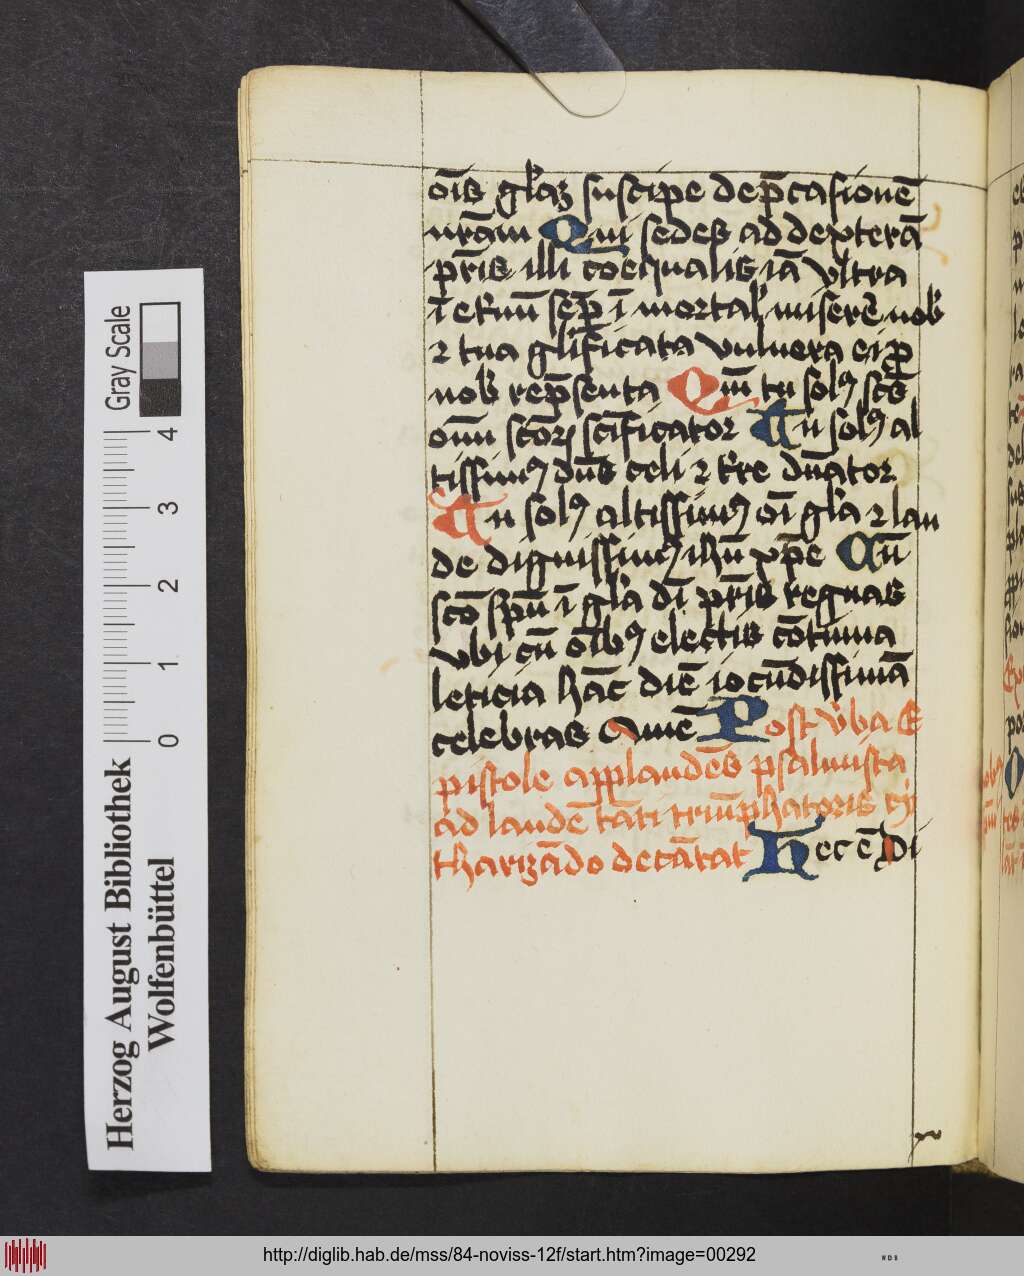 oīs gl'az suscipe dep̄casionē
nr̄am Qui sedes ad dexterā
pr̄is illi cōequalis iā vltra
ī et'nū sēp ī mortal' miserē nob'
⁊ tua glīficata vulnera ei p
nob' rep̄senta Qm̄ tu solꝰ scūs
om̄u scōrꝝ scīficator Tu solꝰ al
tissimꝰ dn̄s celi ⁊ t're dn̄ator
Tu solꝰ altissimꝰ oī gl'a ⁊ lau
de dignissimꝰ ihū xp̄e Cū
scō spū ī gl'a dī pr̄is regnas
vbi cū oībꝰ electis cōtinua
leticia hāc diē iocūdissimā
celebras Amē Post v'ba E
pistole applaudēs psalmista
ad laudē tāti triūphatoris cy
tharizādo decātat Hec ē Di
Herzog August Bibliothek
Wolfenbüttel
Gray Scale
0 1 2 3 4
http://diglib.hab.de/mss/84-noviss-12f/start.htm?image=00292